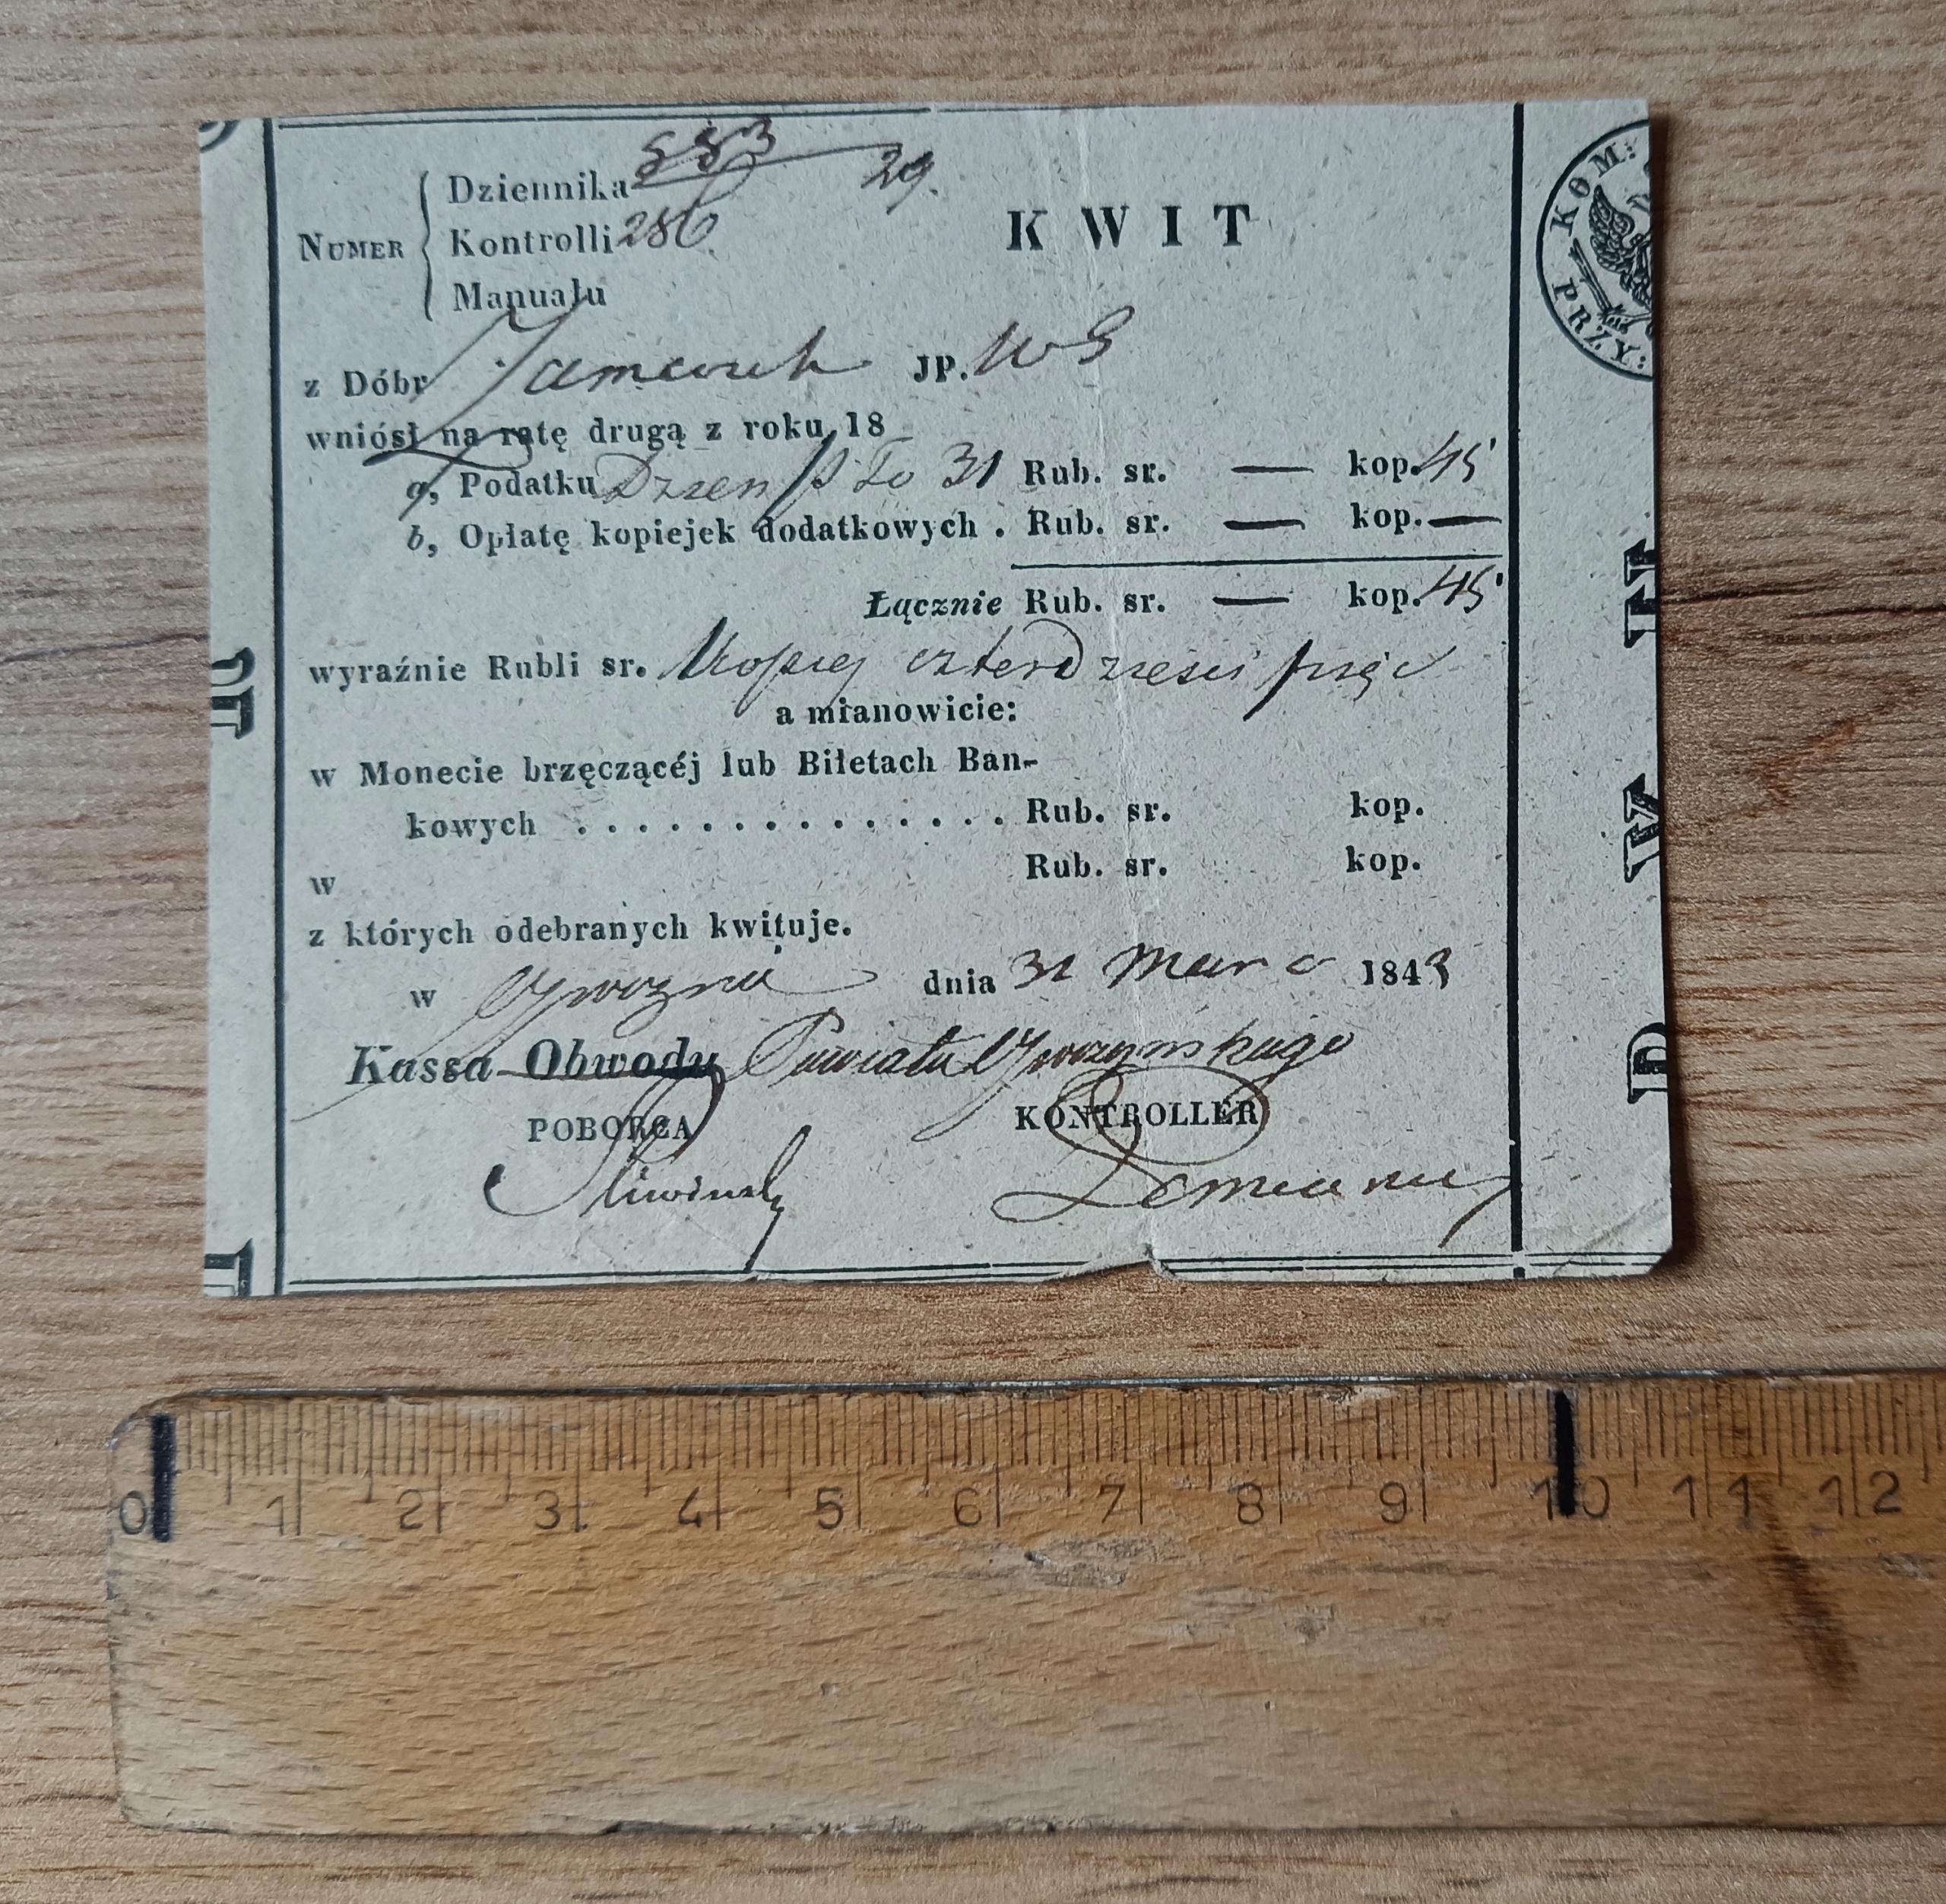 553 29.
NUMER
Dziennika
Kontrolli 286
Manuału
KWIT
z Dóbr JP. WS
wniósł na ratę drugą z roku 18
a, Podatku Dzien Rub. sr. — kop. 45
b, Opłatę kopiejek dodatkowych . Rub. sr. — kop. —
Łącznie Rub. sr. — kop. 45
wyraźnie Rubli sr. Kopiej czterdzieści pięć
a mianowicie:
w Monecie brzęczącéj lub Biletach Ban-
kowych . . . . . . . . . . . . . . Rub. sr. kop.
w Rub. sr. kop.
z których odebranych kwituje.
w dnia 31 Marca 1843
Kassa Obwodu Powiatu
POBORCA KONTROLLER
Sliwinski
KOM:
PRZY:
0 1 2 3 4 5 6 7 8 9 10 11 12